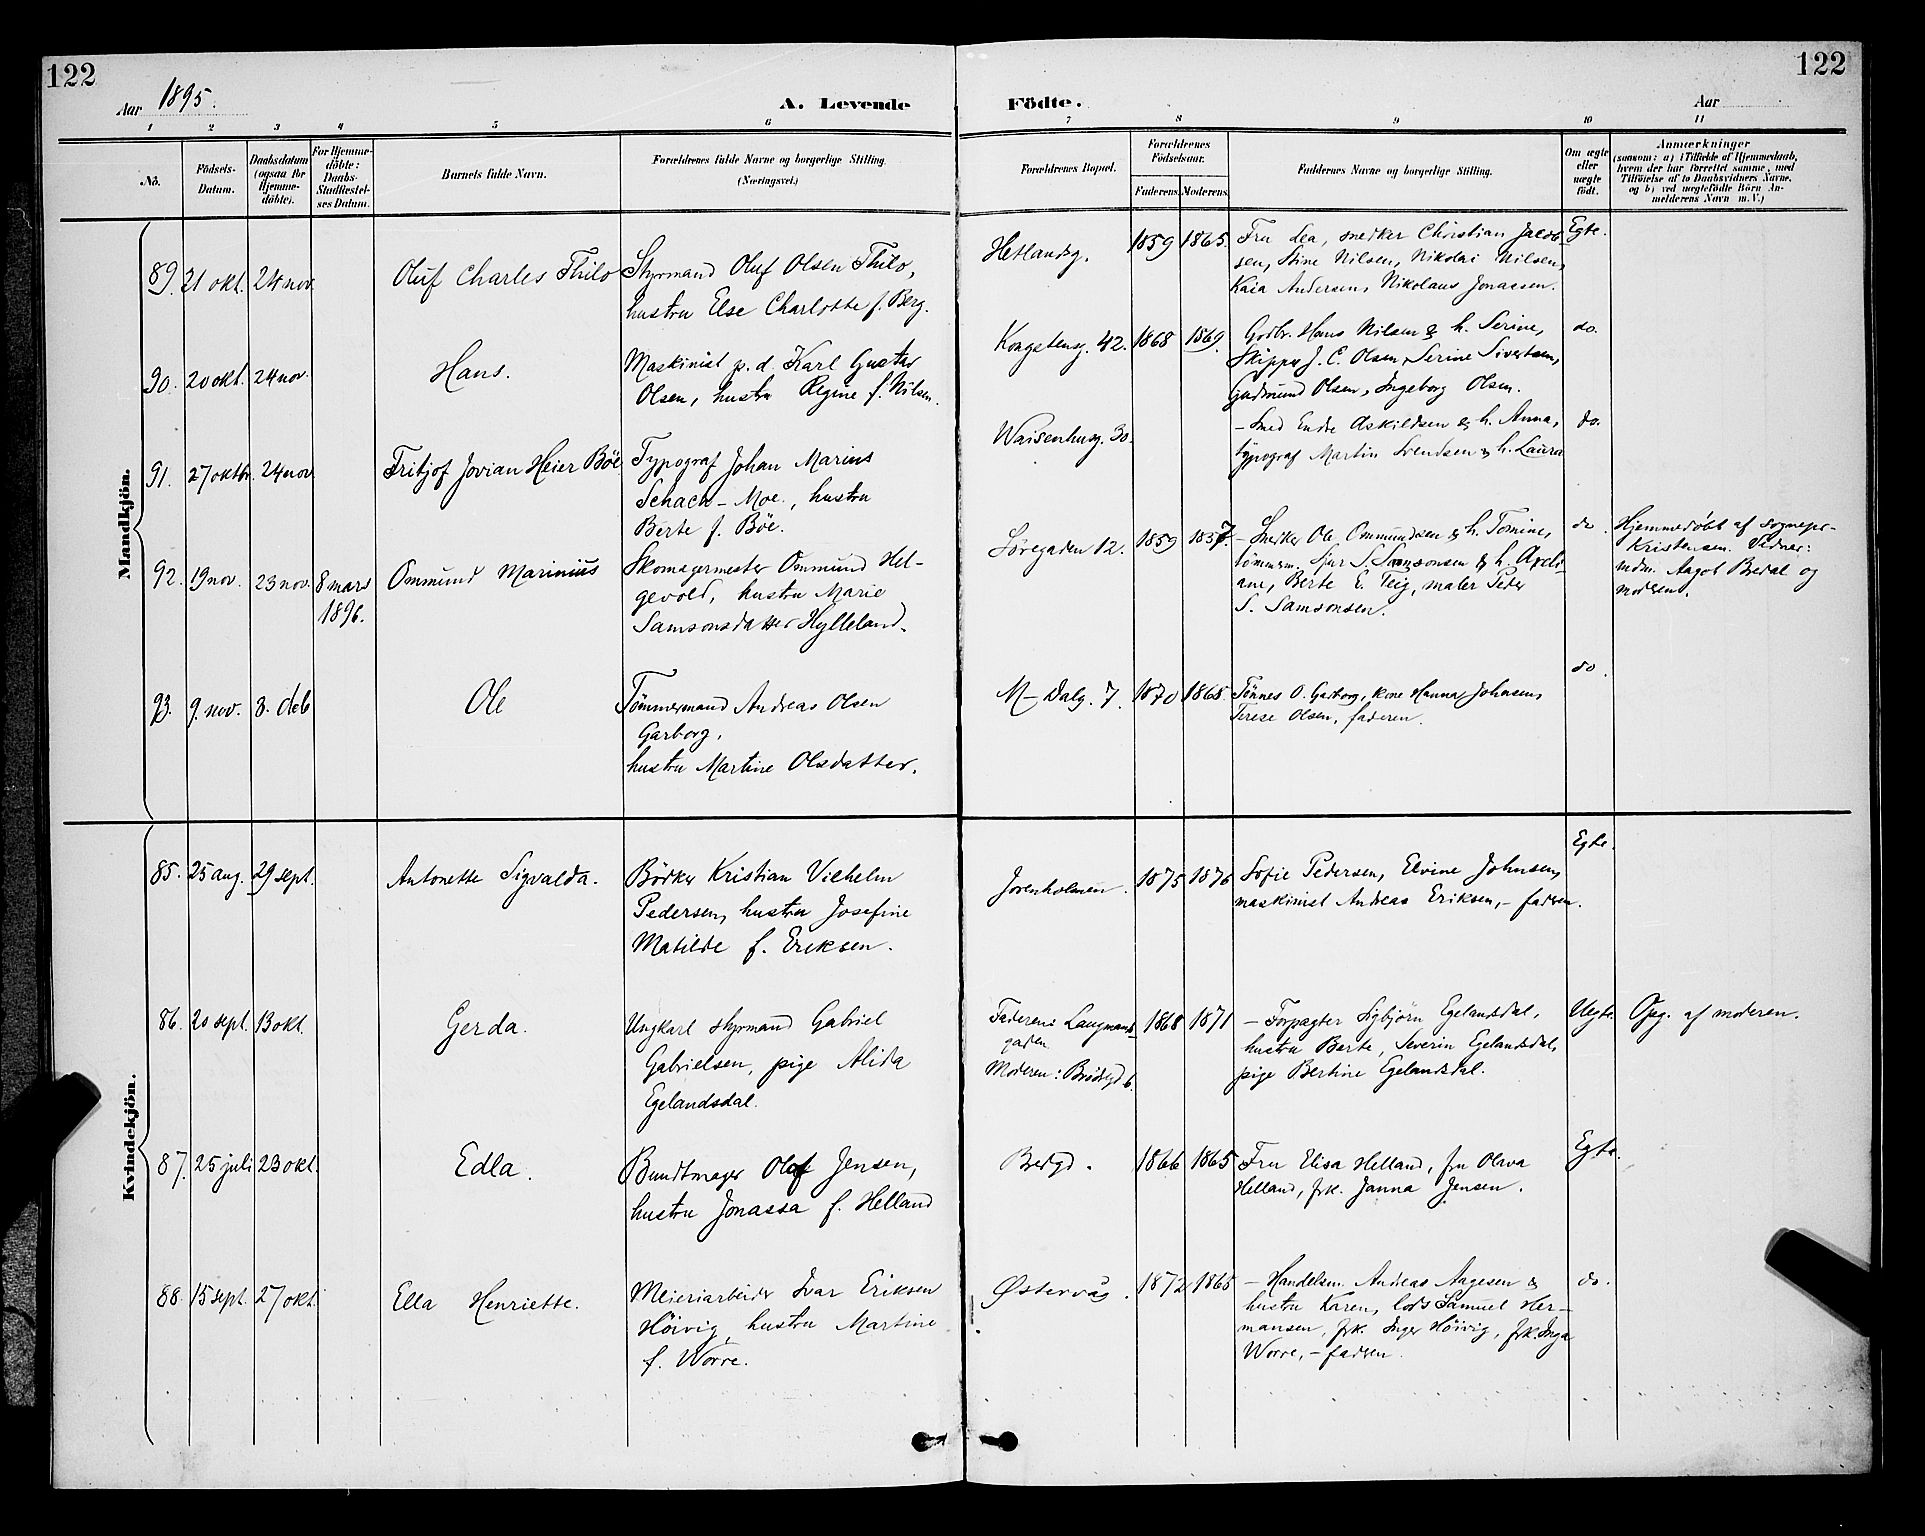 122
122
Aar 1895.
A. Levende
Födte.
Aar
1 2 3 4 5 6 7 8 9 10 11
No.
Födsels-
Datum.
Daabsdatum
(ogsaa for
Hjemme-
döbte).
For Hjemme-
döbte:
Daabs-
Stadfæstel-
ses Datum.
Barnets fulde Navn.
Forældrenes fulde Navne og borgerlige Stilling.
(Næringsvei.)
Forældrenes Bopæl.
Forældrenes
Födselsaar.
Faderens. Moderens.
Faddernes Navne og borgerlige Stilling.
Om ægte
eller
uægte
födt.
Anmærkninger
(saasom: a) i Tilfælde af Hjemmedaab,
hvem der har forrettet samme, med
Tilföielse af to Daabsvidners Navne,
og b) ved uægtefödte Börn An-
melderens Navn m.V.)
Mandkjön.
89. 21 okt. 24 nov.
Oluf Charles Thilo
Styrmand Oluf Olsen Thilo,
hustru Else Charlotte f. Berg.
Hetlandsg.
1859 1865.
Fru Lea, snedker Christian Jacob-
sen, Stine Nilsen, Nikolai Nilsen,
Kaia Andersen, Nikolaus Jonassen.
Egte.
90. 20 okt. 24 nov.
Hans.
Maskinist p.d. Karl Gustav
Olsen, hustru Regine f. Nilsen.
Kongsteng. 42.
1868 1869.
Gbdr. Hans Nilsen & h. Serine,
Skipper J. C. Olsen, Serine Sivertsen,
Gudmund Olsen, Ingeborg Olsen.
do.
91. 27 oktbr. 24 nov.
Fritjof Jovian Heier Böe
Typograf Johan Marius
Schach-Moe, hustru
Berte f. Böe.
Waisenhusg. 30.
- Smed Endre Askildsen & h. Anna,
typograf Martin Svendsen & h. Laura
do.
92. 19 nov. 23 nov. 8 mars
1896.
Ommund Marinius
Skomagermester Ommund Hel-
gevold, hustru Marie
Samsonsdatter Hylleland.
Söregaden 12.
1859 1857.
- Snedker Ole Ommundsen & h. Tomine,
tömmerm. Sjur S. Samsonsen & h. Axeli-
ane, Berte E. Teig, maler Peder
S. Samsonsen.
do.
Hjemmedøbt af sognepr.
Kristensen. Vidner:
mdm. Aagot Bredal og
moderen.
93. 9. nov. 8. deb
Ole
Tömmermand Andreas Olsen
Garborg,
hustru Martine Olsdatter.
M- Dalg. 7.
1870 1868.
Tönnes O. Garborg, kone Hanna Johnsen,
Terese Olsen, faderen.
do.
Kvindekjön.
85. 25 aug. 29 sept.
Antonette Sigvalda.
Bödker Kristian Vilhelm
Pedersen, hustru Josefine
Matilde f. Eriksen.
Jorenholmen.
1875 1876
Sofie Pedersen, Elvine Johnsen,
maskinist Andreas Eriksen, - faderen.
Egte.
86. 20 sept. 13 okt.
Gerda.
Ungkarl styrmand Gabriel
Gabrielsen, pige Alida
Egelandsdal.
Faderen: Laugmands
gaden
Moderen: Brødregd 6.
1868 1871
- Forpagter Sigbjörn Egelandsdal,
hustru Berte, Severin Egelandsdal,
pige Bertine Egelandsdal.
Uegte. Opg. af moderen.
87. 25 juli 23 okt.
Edla.
Bundtmager Olaf Jensen,
hustru Jonassa f. Helland
Bredgd.
1866 1865
Fru Elisa Helland, fru Olava
Helland, frk. Janna Jensen.
Egte.
88. 15 sept. 27 okt.
Ella Henriette.
Meieriarbeider Ivar Eriksen
Höivig, hustru Martine
f. Worre.
Østervåg.
1872 1865
- Handelsm. Andreas Aagesen &
hustru Karen, lods Samuel Her-
mansen, frk. Inger Höivig, frk. Inga
Worre, - faderen.
do.